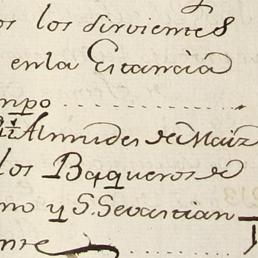 os los Sirvientes
enla Estancia
mpo
Almudes de Maiz
los Baqueros de
mo y S. Sevastian
ente